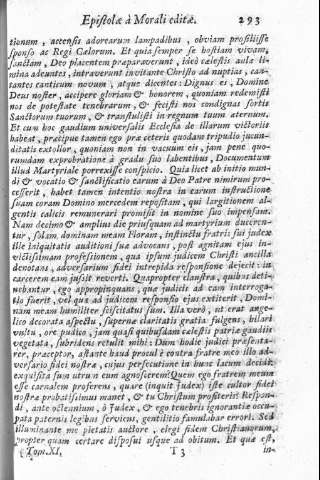 Epistolæ à Morali editæ. 293
tionum, accensis adorearum lampadibus, obviam prosiliisse
sponso ac Regi Cælorum. Et quia semper se hostiam vivam,
sanctam, Deo placentem præparaverunt, ideò cælestis aula li-
mina adeuntes, intraverunt invitante Christo ad nuptias, can-
tantes canticum novum, atque dicentes: Dignus es, Domine
Deus noster, accipere gloriam & honorem, quoniam redemisti
nos de potestate tenebrarum, & fecisti nos condignas sortis
Sanctorum tuorum, & transtulisti in regnum tuum æternum.
Et cum hoc gaudium universalis Ecclesia de illarum victoriis
habeat, præcipuè tamen ego præ ceteris quodam tripudio jucun-
ditatis extollor, quoniam non in vacuum eis, jam pene quo-
rumdam exprobratione à gradu suo labentibus, Documentum
illud Martyriale porrexisse conspicio. Quia licet ab initio mun-
di & vocatio & sanctificatio earum à Deo Patre nimirum pro-
cesserit, habet tamen intentio nostra in earum instructione
suam coram Domino mercedem repositam, qui largitionem al-
gentis calicis remunerari promisit in nomine suo impensam.
Nam decimo & amplius die priusquam ad martyrium duceren-
tur, solam, dominam meam Floram, instinctu fratris sui judex
ille iniquitatis auditioni suæ advocans, post agnitam ejus in-
victissimam professionem, qua ipsum judicem Christi ancilla
denotans, adversarium fidei intrepida responsione dejecit in
carcerem eam jussit reverti. Quapropter claustra, quibus deti-
nebantur, ego appropinquans, quæ judicis ad eam interroga-
tio fuerit, vel quæ ad judicem responsio ejus extiterit, Domi-
nam meam humiliter sciscitatus sum. Illa verò, ut erat ange-
lico decorata aspectu, supernæ claritatis gratia fulgens, hilari
vultu, ore pudico, jam quasi quibusdam cælestis patriæ gaudiis
vegetata, subridens retulit mihi: Dum hodie judici præsenta-
rer, præceptor, astante haud procul è contra fratre meo illo ad-
versario fidei nostræ, cujus persecutione in hunc lacum decidi;
exquisita sum utrum eum agnoscerem? Quem ego fratrem meum
esse carnalem proferens, quare (inquit Judex) iste cultor fidei
nostræ probatissimus manet, & tu Christum profiteris? Respon-
di, ante octennium, ò Judex, & ego tenebris ignorantiæ occu-
pata paternis legibus serviens, gentilitio famulabar errori. Sed
illuminante me pietatis auctore, elegi fidem Christianorum,
propter quam certare disposui usque ad obitum. Et quæ est,
Tom. XI. T 3 in-